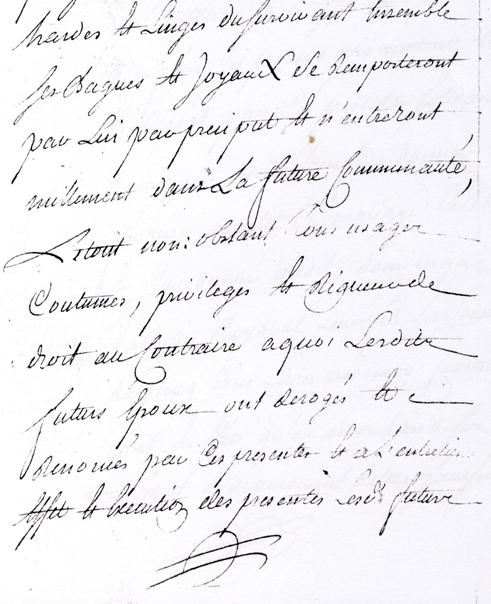 hardes et Linges du survivant Ensemble
ses Bagues et Joyaux se Remporteront
par Lui par preciput et n'entreront
nullement dans La future Communauté,
Letout non:obstant tous usages
Coutumes, privileges et Rigueur de
droit au Contraire a quoi Lesdits
futurs Epoux ont derogés et
Renoncés par Ces presentes et a L'entretien
Effet et Execution des presentes Lesd. future